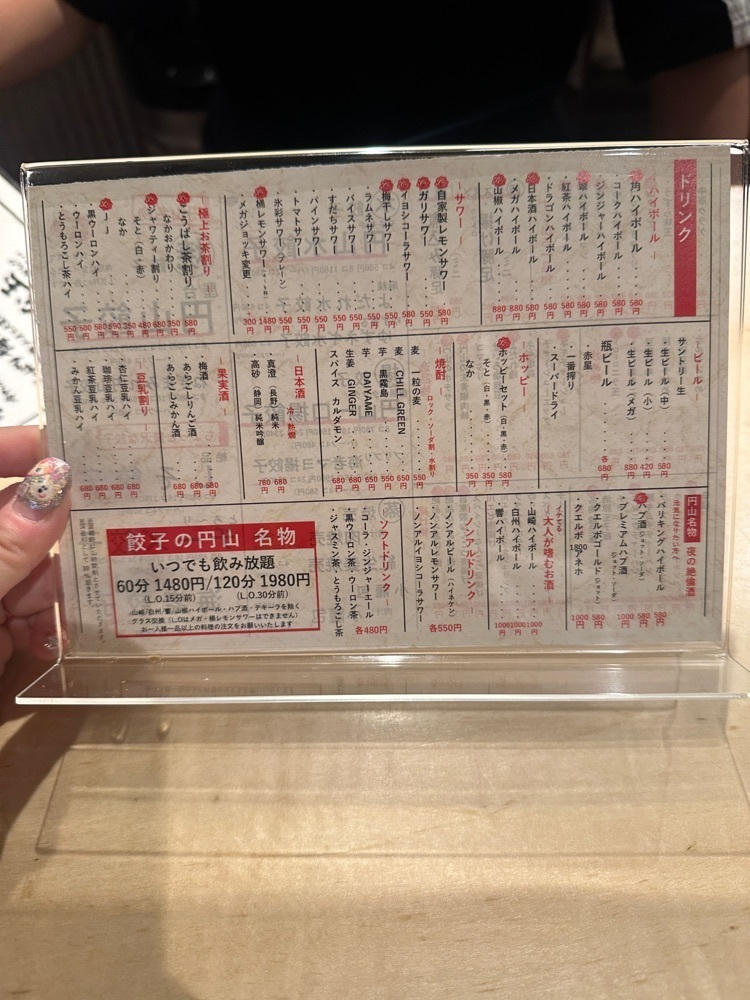 ドリンク
ハイボール
角ハイボール 580円
コークハイボール 580円
ジンジャーハイボール 580円
翠ハイボール 580円
紅茶ハイボール 580円
ドラゴンハイボール 580円
日本酒ハイボール 580円
メガハイボール 880円
山椒ハイボール 880円
サワー
自家製レモンサワー 580円
ガリサワー 580円
イヨシコーラサワー 650円
梅干しサワー
ラムネサワー 550円
バイスサワー 550円
すだちサワー 550円
パインサワー 550円
トマトサワー 550円
氷彩サワー（プレーン）
桶レモンサワー 1480円
メガジョッキ変更 300円
極上お茶割り
こうばし茶割り 580円
なかおかわり 350円
ジャワティー割り 480円
そと（白・赤）
なか
黒ウーロンハイ
ウーロンハイ 500円
とうもろこし茶ハイ 550円
ビール
サントリー生
生ビール（中） 580円
生ビール（小） 420円
生ビール（メガ） 880円
瓶ビール 各680円
赤星
一番搾り
スーパードライ
ホッピー
ホッピーセット（白・黒・赤） 580円
そと（白・黒・赤） 350円
なか 350円
焼酎
ロック・ソーダ割・水割り
麦 一粒の麦 550円
麦 CHILL GREEN
芋 黒霧島
芋 DAIYAME
生姜 GINGER 680円
スパイス カルダモン 680円
日本酒
冷・熱燗
真澄（長野）純米 680円
高砂（静岡）純米吟醸 780円
果実酒
梅酒 580円
あらごしりんご酒 680円
あらごしみかん酒 680円
豆乳割り
杏仁豆乳ハイ 680円
珈琲豆乳ハイ 680円
紅茶豆乳ハイ 680円
みかん豆乳ハイ 680円
円山名物 夜の絶倫酒
元気になりたい方へ
バリキングハイボール 580円
ハブ酒（ショット・ソーダ） 580円
プレミアムハブ酒（ショット・ソーダ） 1000円
クエルボゴールド（ショット） 580円
クエルボ1800アネホ 1000円
イケてる
大人が嗜むお酒
山崎ハイボール 1000円
白州ハイボール 1000円
響ハイボール 1000円
ノンアルドリンク
ノンアルビール（ハイネケン）
ノンアルレモンサワー
ノンアルイヨシコーラサワー
各550円
ソフトドリンク
コーラ・ジンジャーエール
黒ウーロン茶、ウーロン茶
ジャスミン茶、とうもろこし茶
各480円
餃子の円山 名物
いつでも飲み放題
60分 1480円/120分 1980円
（L.O.15分前） （L.O.30分前）
山崎/白州/響/山椒ハイボール・ハブ酒・テキーラを除く
グラス交換（L.Oはメガ・桶レモンサワーはできません）
お一人様一品以上の料理の注文をお願いいたします